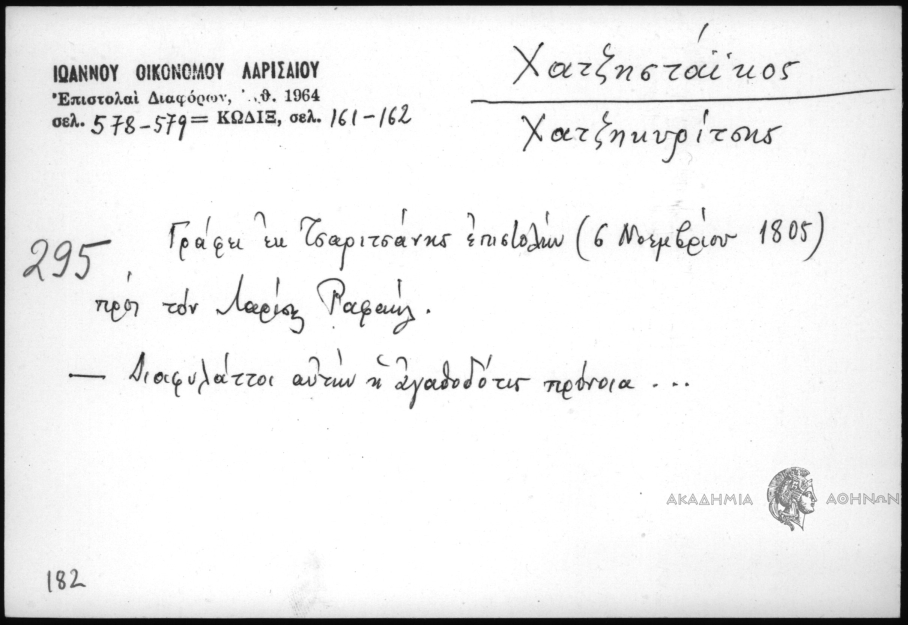 ΙΩΑΝΝΟΥ ΟΙΚΟΝΟΜΟΥ ΛΑΡΙΣΑΙΟΥ
Ἐπιστολαὶ Διαφόρων, 1964
σελ. 578-579 = ΚΩΔΙΞ, σελ. 161-162
Χατζηστάϊκος
Χατζηκυρίτσης
295
Γράφει ἐκ Τσαριτσάνης ἐπιστολὴν (6 Νοεμβρίου 1805)
πρὸς τὸν Λαρίσης Ραφαήλ.
— Διαφυλάττοι αὐτὴν ἡ ἀγαθοδότις πρόνοια ...
ΑΚΑΔΗΜΙΑ ΑΘΗΝΩΝ
182